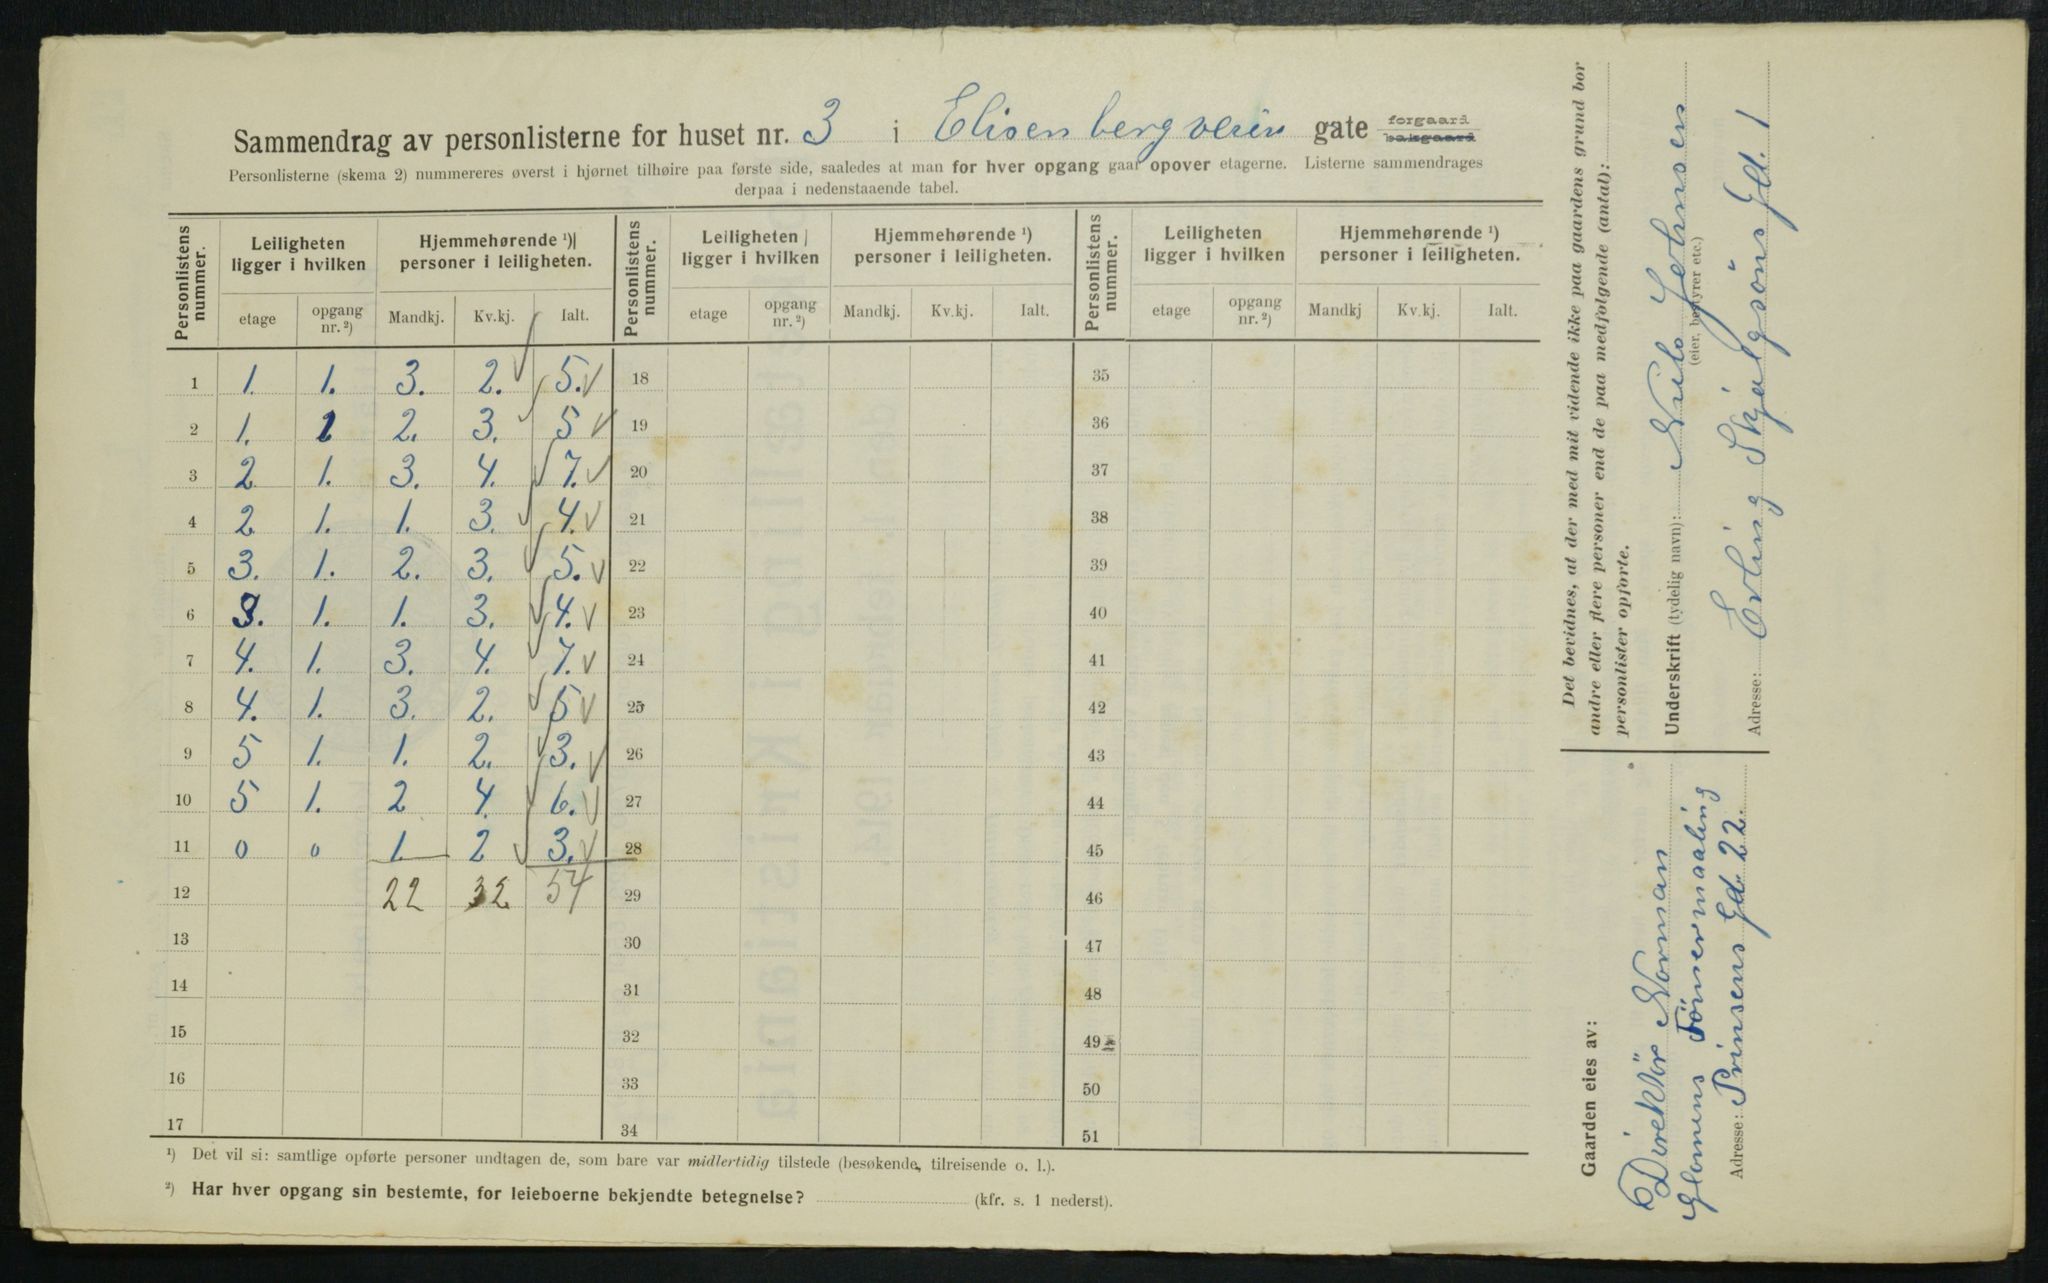 Sammendrag av personlisterne for huset nr. 3 i Elisenbergveien gate forgaard bakgaard
Personlisterne (skema 2) nummereres øverst i hjørnet tilhøire paa første side, saaledes at man for hver opgang gaar opover etagerne. Listerne sammendrages
derpaa i nedenstaaende tabel.
Personlistens nummer. Leiligheten ligger i hvilken Hjemmehørende ¹) personer i leiligheten. Personlistens nummer. Leiligheten ligger i hvilken Hjemmehørende ¹) personer i leiligheten. Personlistens nummer. Leiligheten ligger i hvilken Hjemmehørende ¹) personer i leiligheten.
etage opgang nr. ²) Mandkj. Kv.kj. Ialt. etage opgang nr. ²) Mandkj. Kv.kj. Ialt. etage opgang nr. ²) Mandkj Kv.kj. Ialt.
1 1. 1. 3. 2. 5. 18 35
2 1. 1 2. 3. 5 19 36
3 2 1. 3. 4. 7. 20 37
4 2 1. 1. 3. 4. 21 38
5 3. 1. 2. 3. 5. 22 39
6 3. 1. 1. 3. 4. 23 40
7 4. 1. 3. 4. 7. 24 41
8 4. 1. 3. 2. 5 25 42
9 5 1. 1. 2. 3. 26 43
10 5 1. 2 4. 6. 27 44
11 0 0 1. 2 3. 28 45
12 22 32 54 29 46
13 30 47
14 31 48
15 32 49
16 33 50
17 34 51
¹) Det vil si: samtlige opførte personer undtagen de, som bare var midlertidig tilstede (besøkende, tilreisende o. l.).
²) Har hver opgang sin bestemte, for leieboerne bekjendte betegnelse? (kfr. s. 1 nederst).
Det bevidnes, at der med mit vidende ikke paa gaardens grund bor
andre eller flere personer end de paa medfølgende (antal):
personlister opførte.
Underskrift (tydelig navn): Nils Johnsen
(eier, bestyrer etc.)
Adresse: Erling Skjalgsöns Gd. 1
Gaarden eies av:
Direktör Norman
Glomens Tömmermaaling
Adresse: Prinsens Gd. 22.